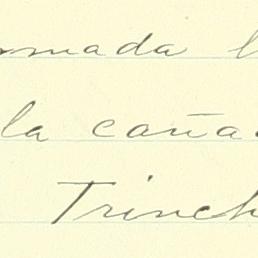 mada l
la caña
Trinch